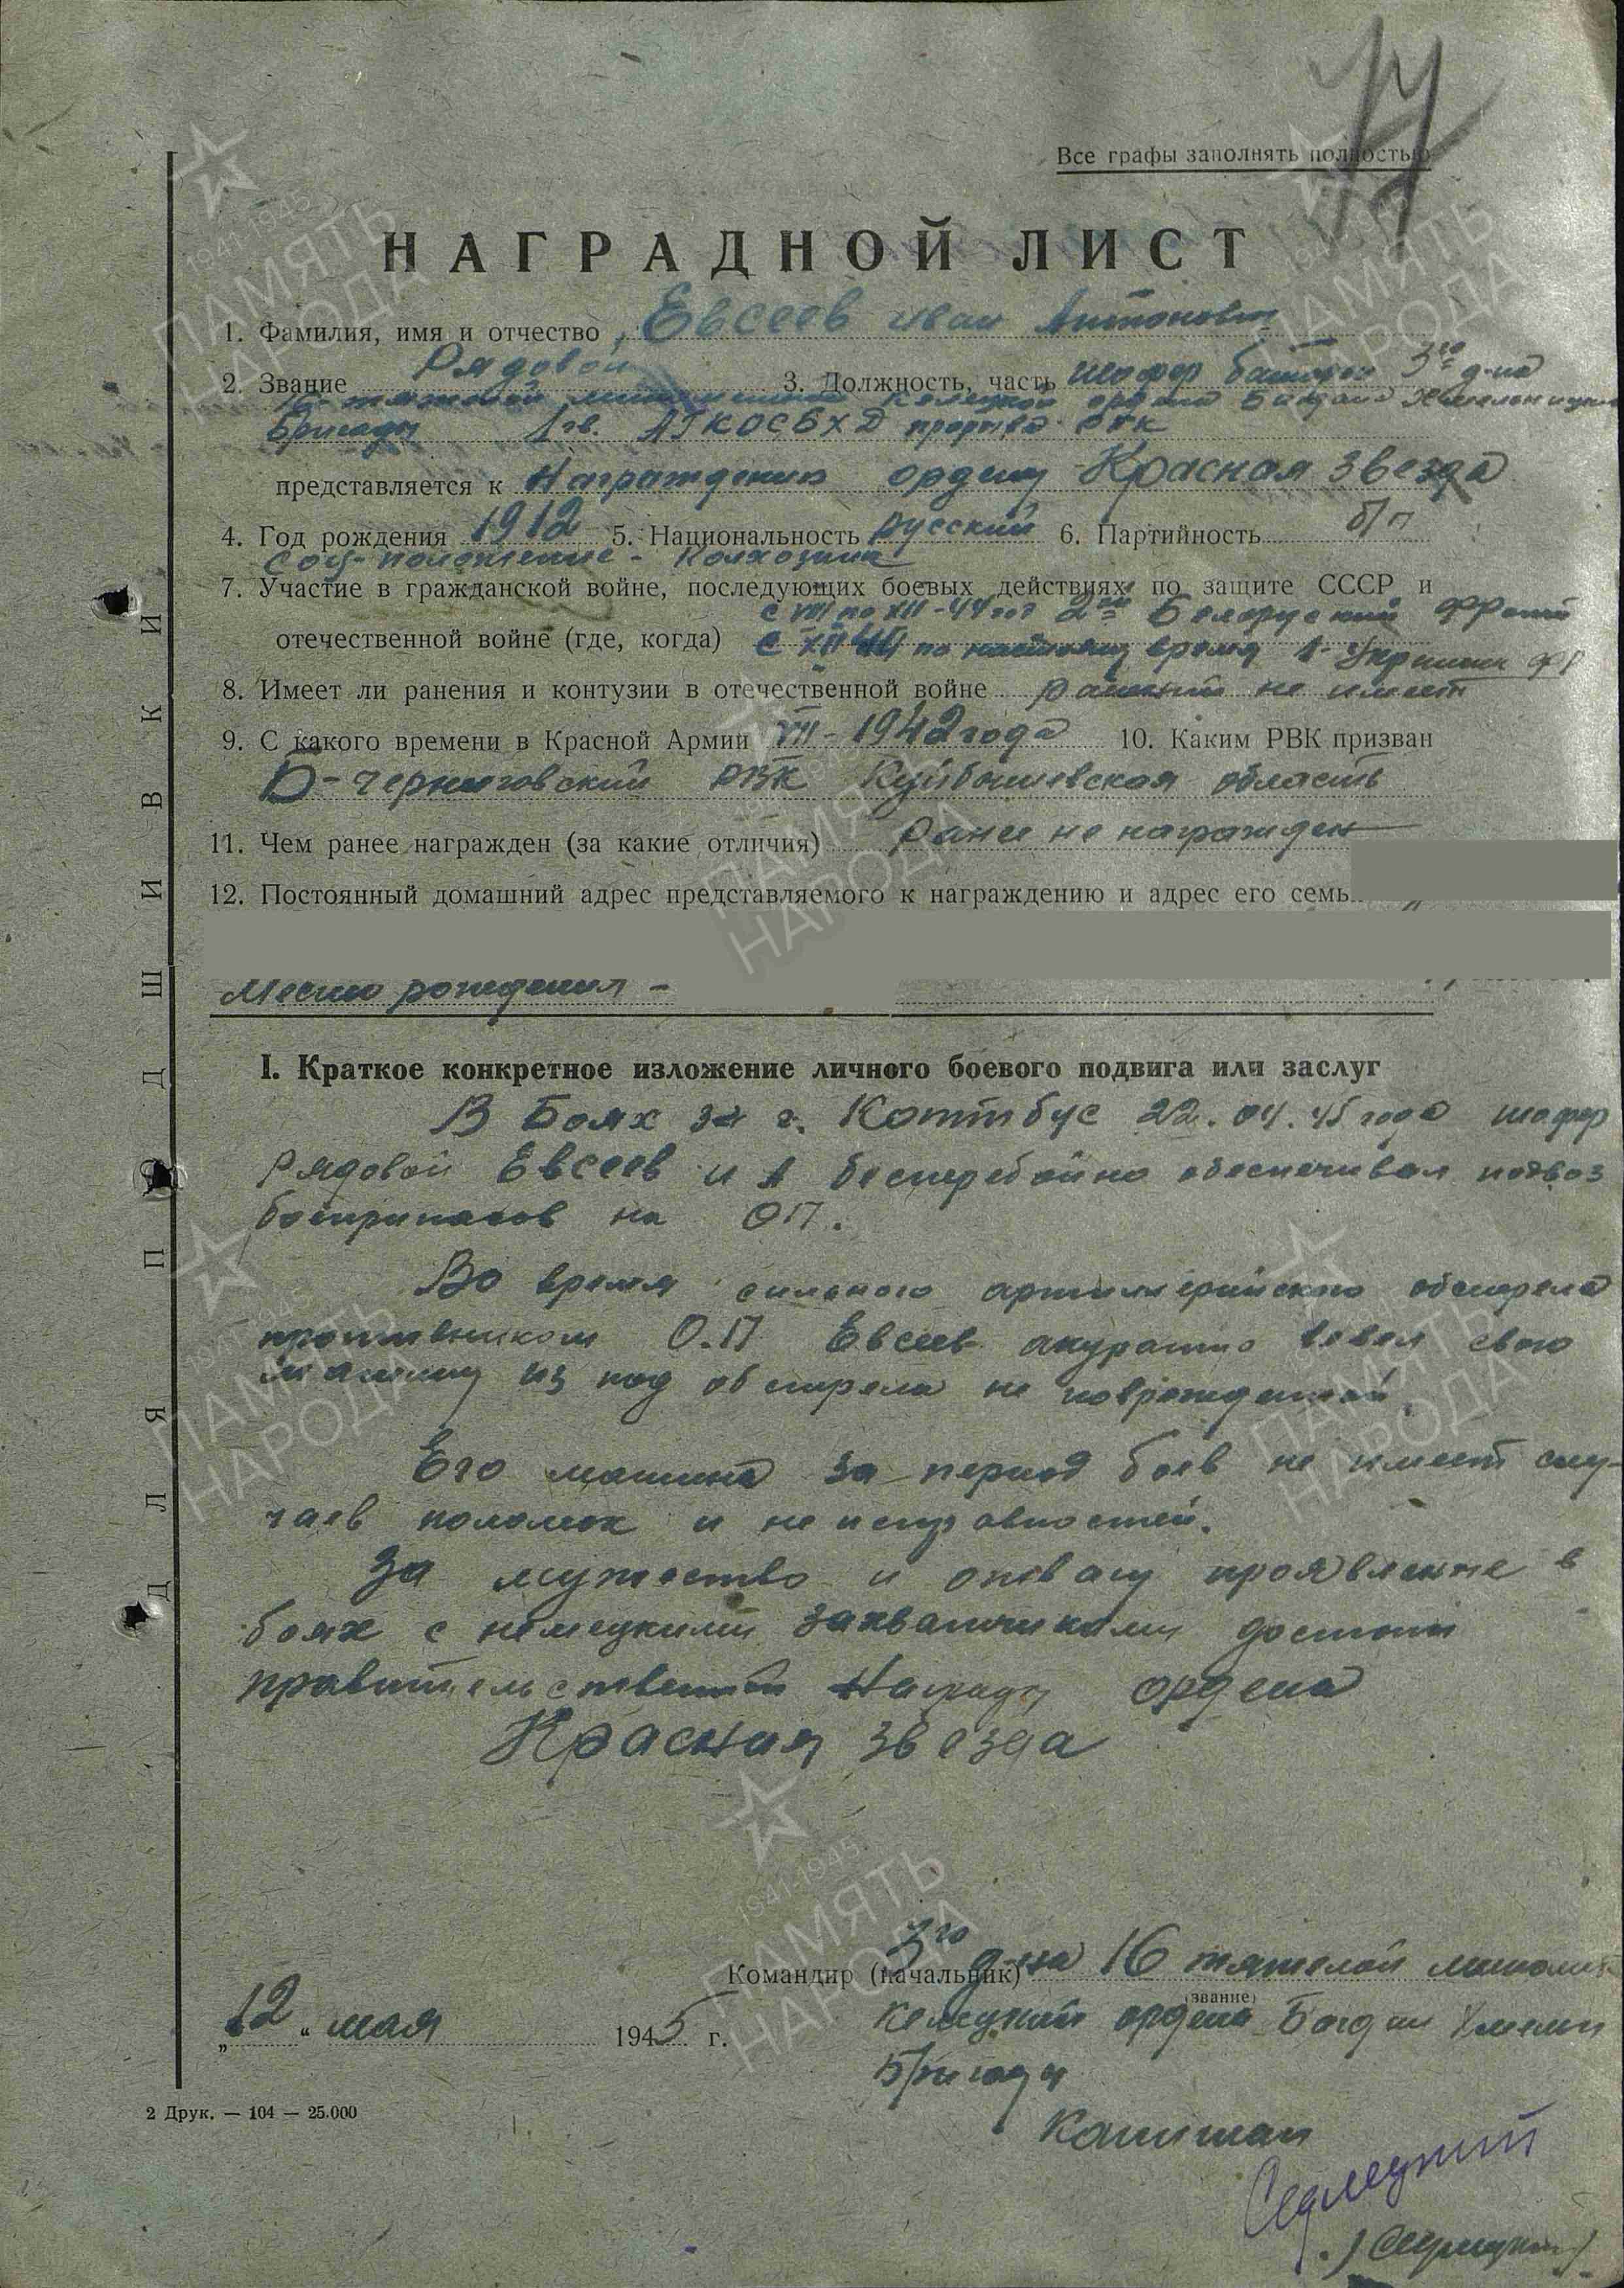 77
Все графы заполнять полностью
НАГРАДНОЙ ЛИСТ
1. Фамилия, имя и отчество Евсеев Иван Антонович
2. Звание Рядовой 3. Должность, часть шофер батареи 3го д-на
16 тяжелой минометной Келецкой ордена Богдана Хмельницкого
Бригады 1 гв. АГКОСБХД прорыва РГК
представляется к Награждению ордену Красная звезда
4. Год рождения 1912 5. Национальность русский 6. Партийность б/п
Соц-положение - колхозник
7. Участие в гражданской войне, последующих боевых действиях по защите СССР и
с VIII по XII-44 год 2ой Белоруский Фронт
отечественной войне (где, когда) с XII по настоящ время 1-Украинс
8. Имеет ли ранения и контузии в отечественной войне ранений не имеет
9. С какого времени в Красной Армии VII-1942 года 10. Каким РВК призван
Б-черниговский РВК Куйбышевская область
11. Чем ранее награжден (за какие отличия) ранее не награжден
12. Постоянный домашний адрес представляемого к награждению и адрес его семь
Место рождения -
I. Краткое конкретное изложение личного боевого подвига или заслуг
В Боях за г. Коттбус 22.04.45 года шофер
Рядовой Евсеев И А бесперебойно обеспечивал подвоз
боеприпасов на ОП.
Во время сильного артиллерийского обстрела
противником О.П Евсеев акуратно вевел свою
машину из под обстрела не поврежденной.
Его машина за период боев не имеет слу-
чаев поломок и неисправностей.
За мужество и отвагу проявление в
боях с немецкими захватчиками достоин
правительственной Награды ордена
Красная звезда
Командир (начальник) 3го д-на 16 тяжелой миномет
(звание)
Келецкий ордена Богдан Хмельн
Бригады
„12“ мая 1945 г.
Капитан
Седлецкий
(Седлецкий)
2 Друк. — 104 — 25.000
ДЛЯ ПОДШИВКИ
1941-1945
ПАМЯТЬ
НАРОДА